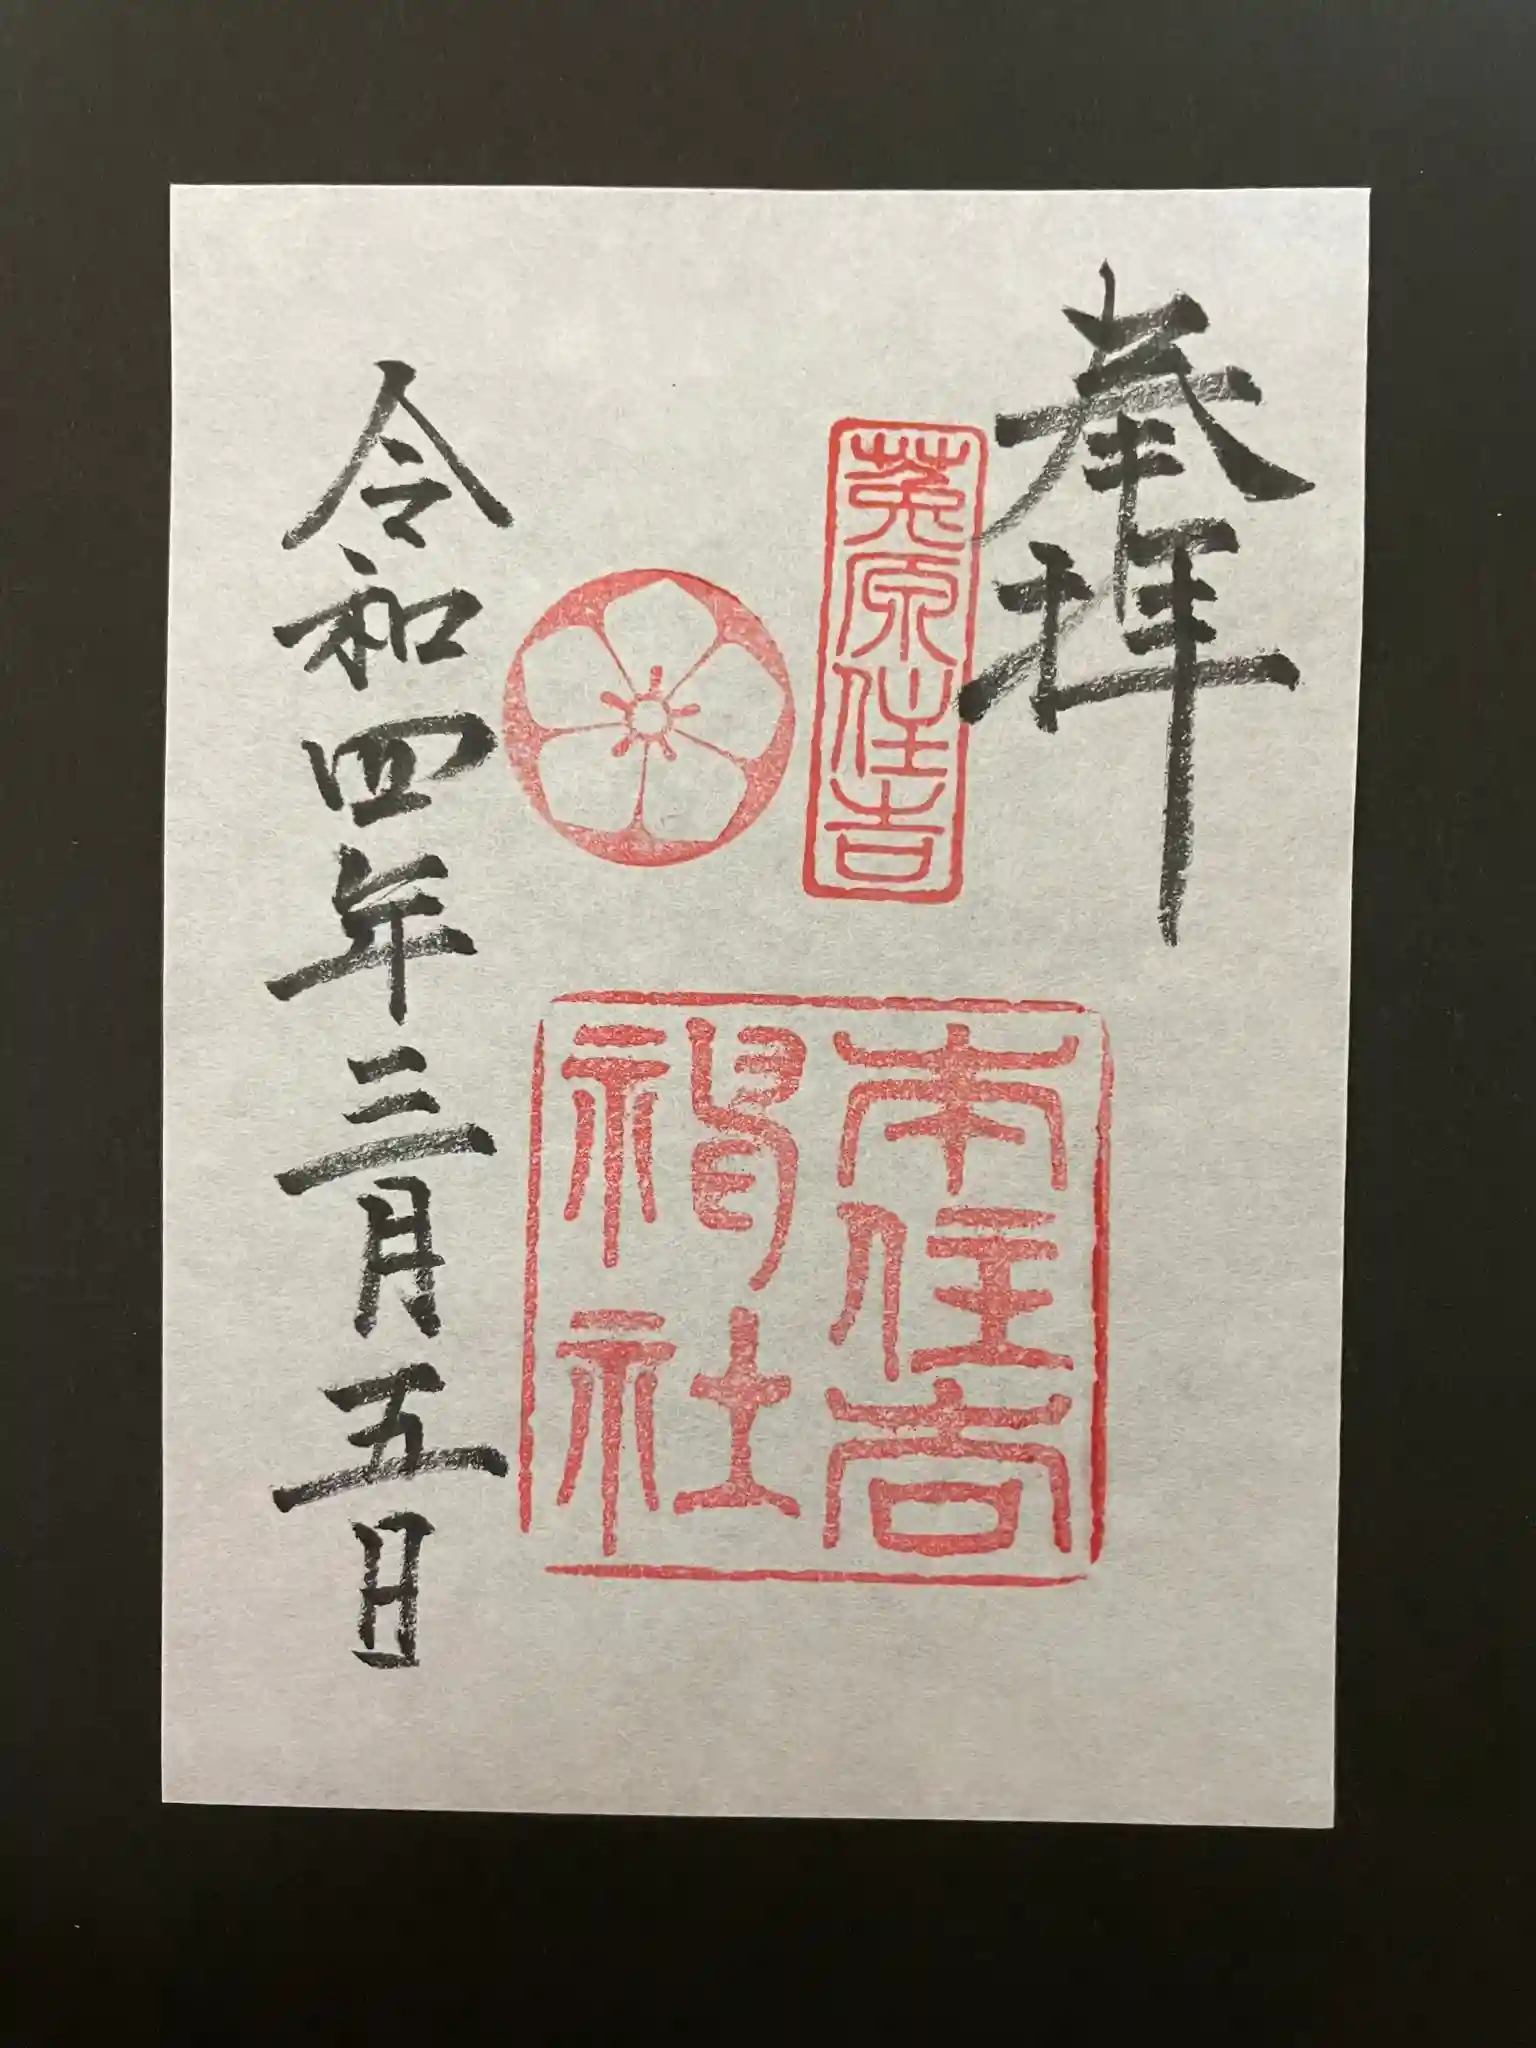 奉拝
菟原住吉
本住吉
神社
令和四年三月五日